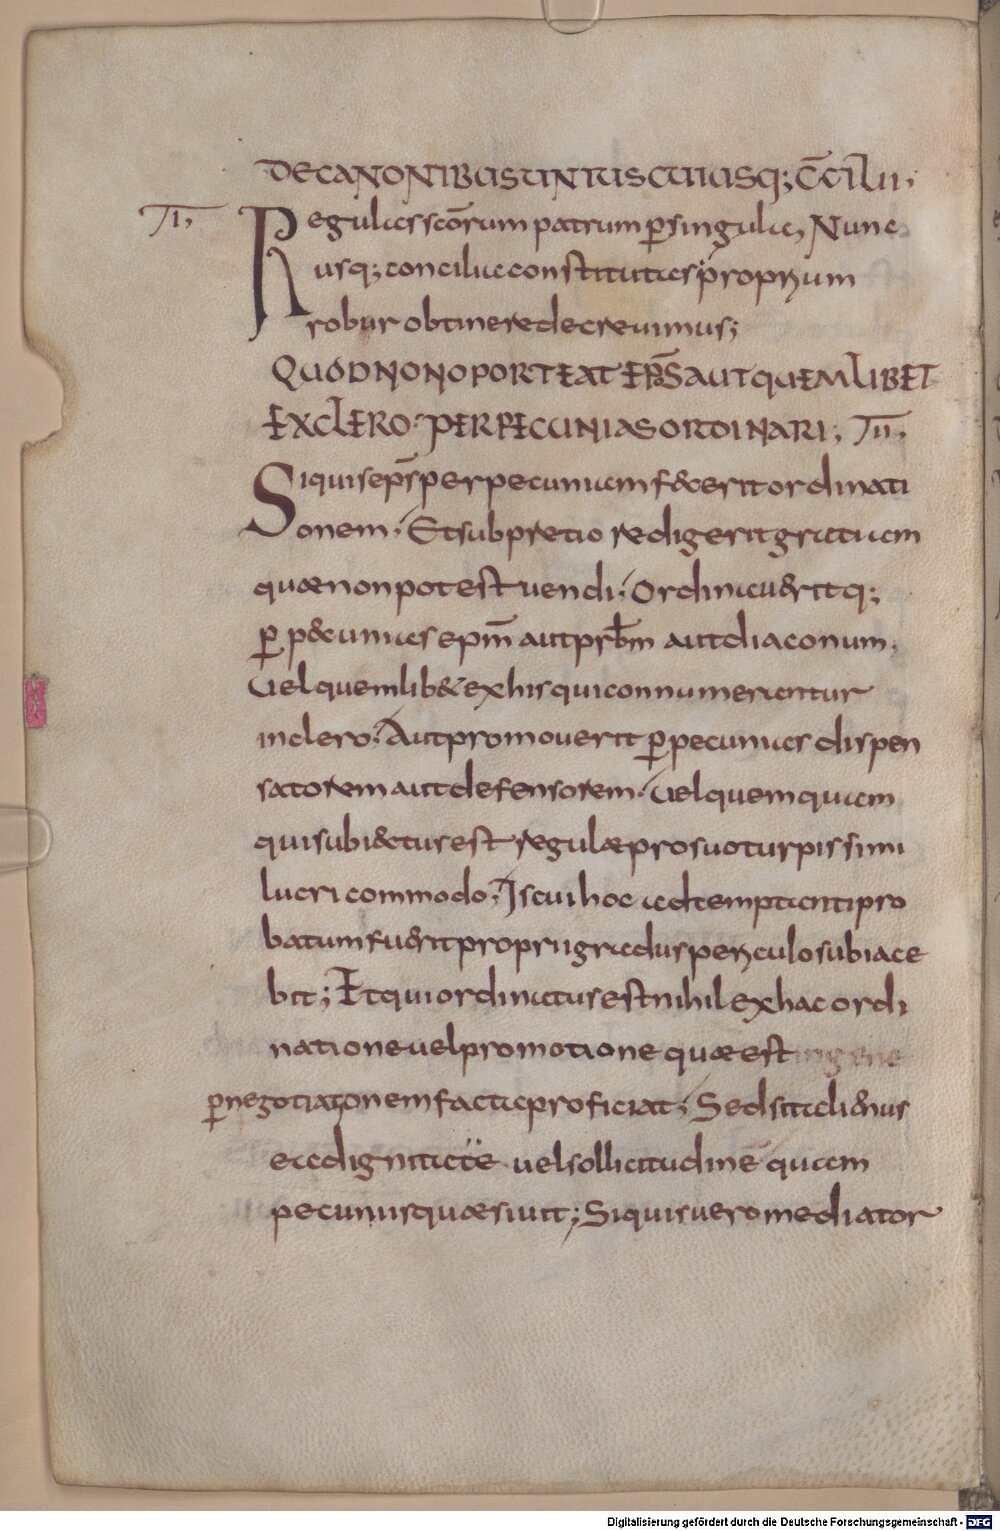 DE CANONIBUS UNIUSCUIUSQ; CC̄ILII.
T̄I, Regulas sc̄orum patrum ꝑ singula, Nunc
usq; concilia constitutas proprium
robur obtinere decrevimus;
QUOD NON OPORTEAT EP̄S AUT QUEMLIBET
EX CLERO PER PECUNIAS ORDINARI. T̄II.
Si quis ep̄s per pecuniam f&cerit ordinati
onem. Et sub pretio redigerit gratiam
quæ non potest uendi. Ordinau&rit q;
ꝑ p&cunias ep̄m aut prb̄m aut diaconum.
Uel quemlib& ex his qui connumerantur
in clero. Aut promouerit ꝑ pecunias dispen
satorem aut defensorem. Uel quemquam
qui subi&ctus est regulæ pro suo turpissimi
lucri commodo. Is cui hoc adtemptanti pro
batum fu&rit proprii gradus periculo subiace
bit; Et qui ordinatus est nihil ex hac ordi
natione uel promotione quæ est
ꝑ negotiationem facta proficiat; Sed sit ali&nus
ea dignitate uel sollicitudinē quam
pecuniis quæsiuit; Si quis uero mediator
Digitalisierung gefördert durch die Deutsche Forschungsgemeinschaft - DFG